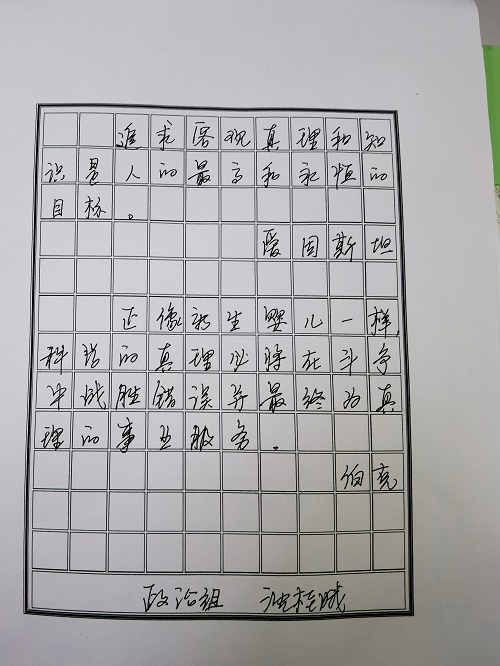 追求客观真理和知
识是人的最高和永恒的
目标。
爱因斯坦
正像新生婴儿一样,
科学的真理必将在斗争
中战胜错误并最终为真
理的事业服务。
伯克
政治组